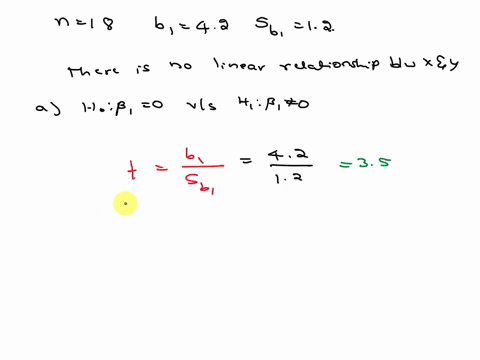 n=18 b₁=4.2 S_b₁=1.2.
There is no linear relationship b/w x & y
a) H₀:β₁=0 v/s H₁:β₁≠0
t = b₁/S_b₁ = 4.2/1.2 =3.5